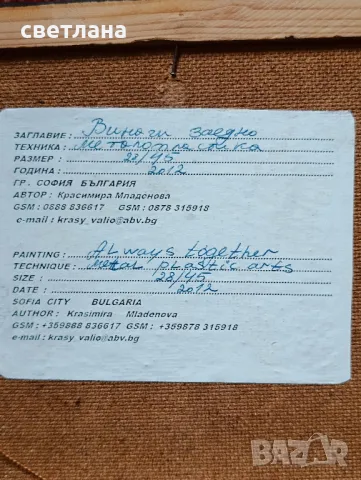 светлана
ЗАГЛАВИЕ: Винаги заедно
ТЕХНИКА: Металопластика
РАЗМЕР: 28/45
ГОДИНА: 2012
ГР. СОФИЯ БЪЛГАРИЯ
АВТОР: Красимира Младенова
GSM: 0888 836617 GSM: 0878 315918
e-mail: krasy_valio@abv.bg
PAINTING: Always together
TECHNIQUE: Metal plastic arts
SIZE: 28/45
DATE: 2012
SOFIA CITY BULGARIA
AUTHOR: Krasimira Mladenova
GSM: +359888 836617 GSM: +359878 315918
e-mail: krasy_valio@abv.bg
BAZAR
bg